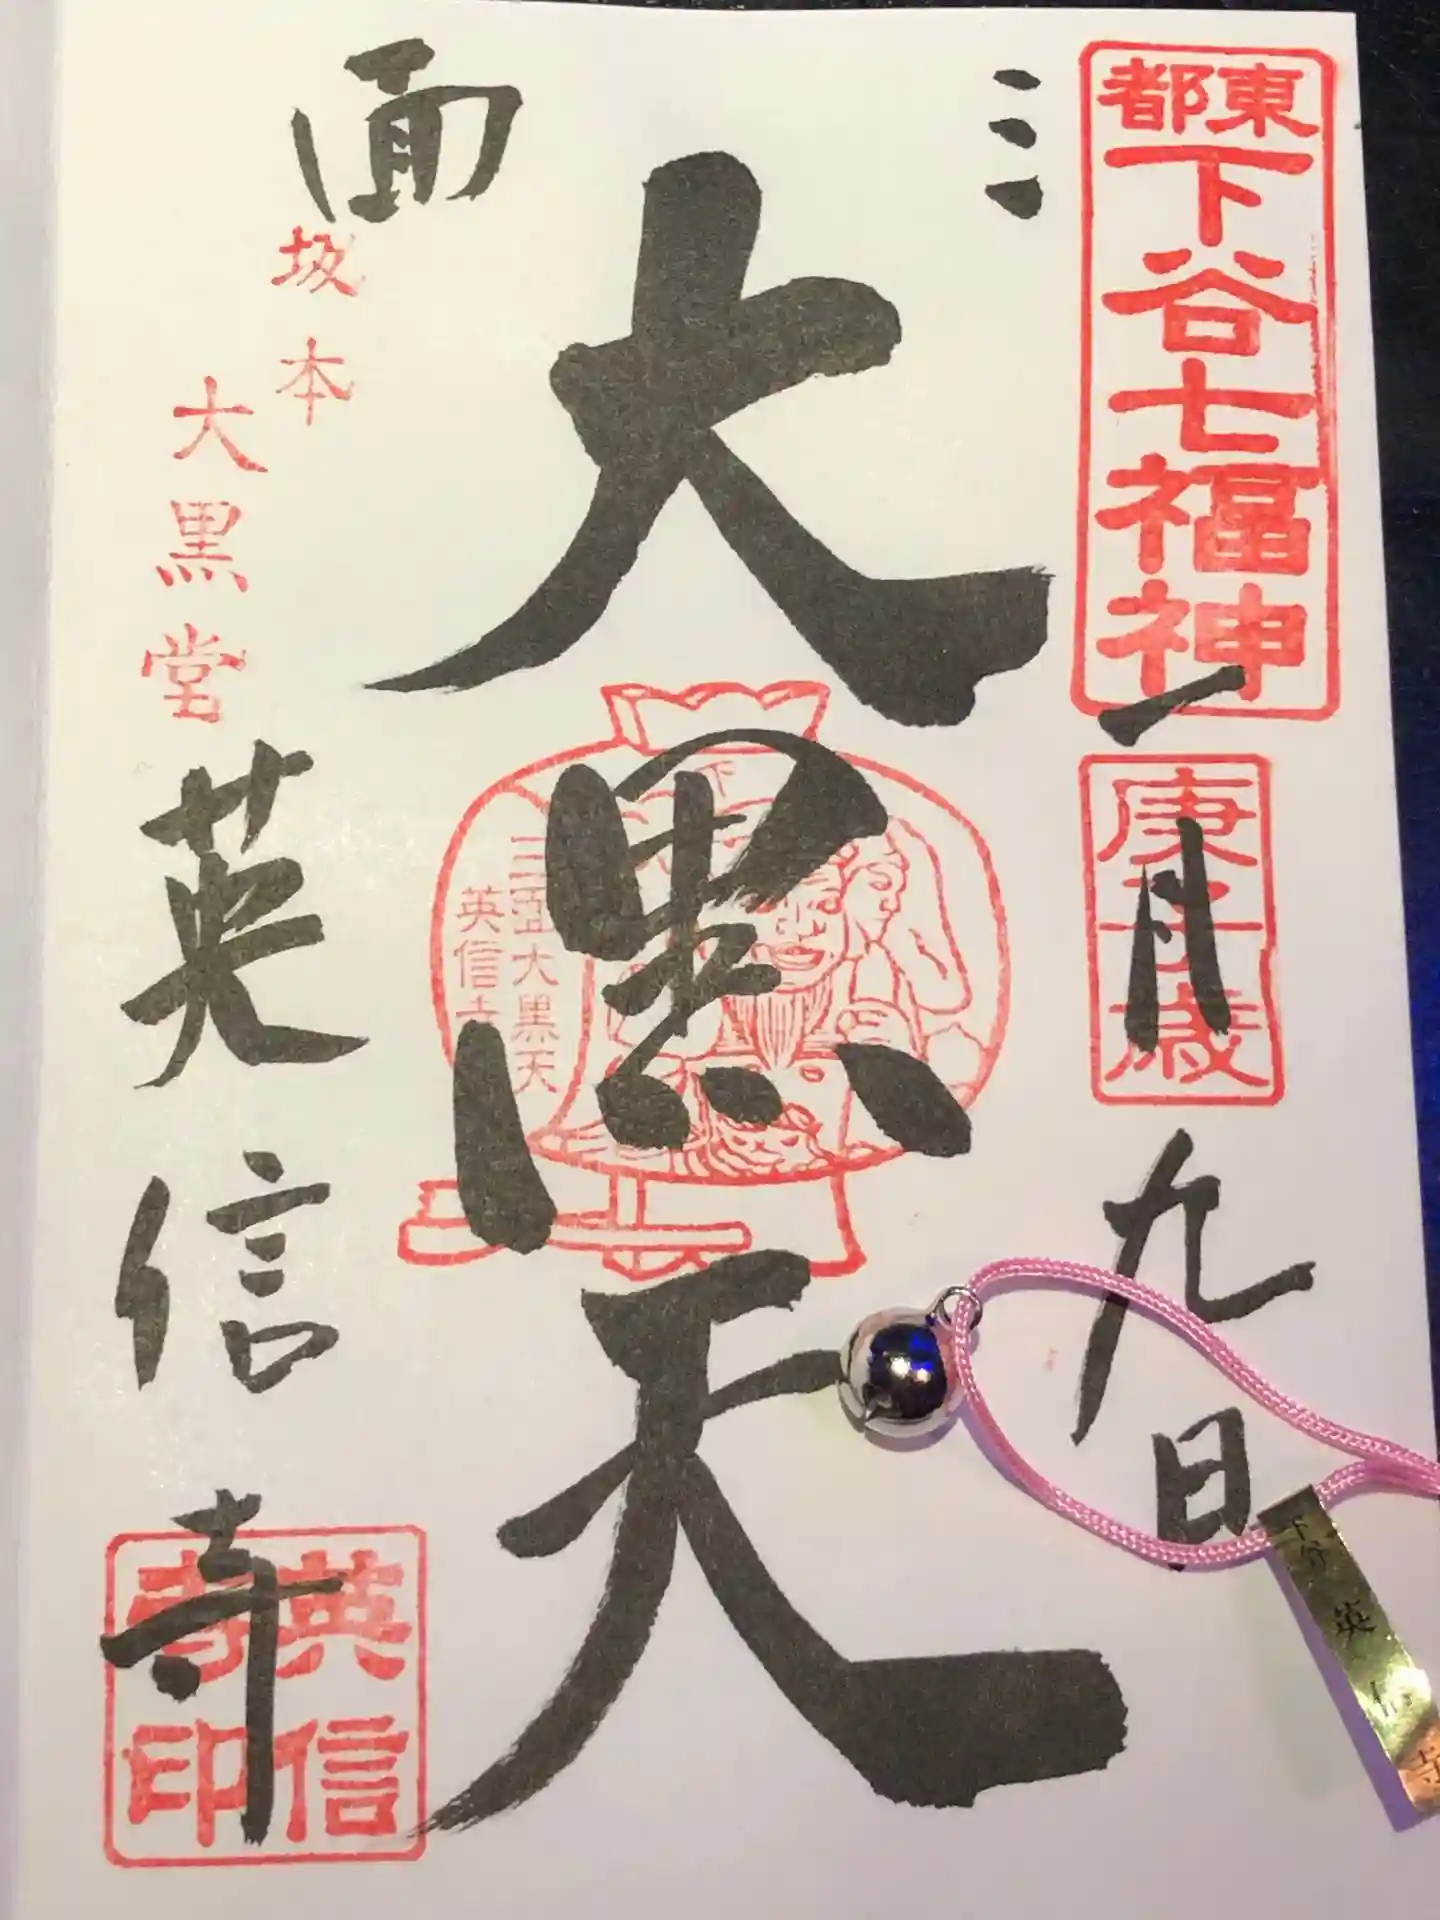 東都
下谷七福神
庚子歳
一月九日
三面
大黒天
下
三面大黒天
英信寺
坂本
大黒堂
英信寺
英信寺印
下谷 英信寺